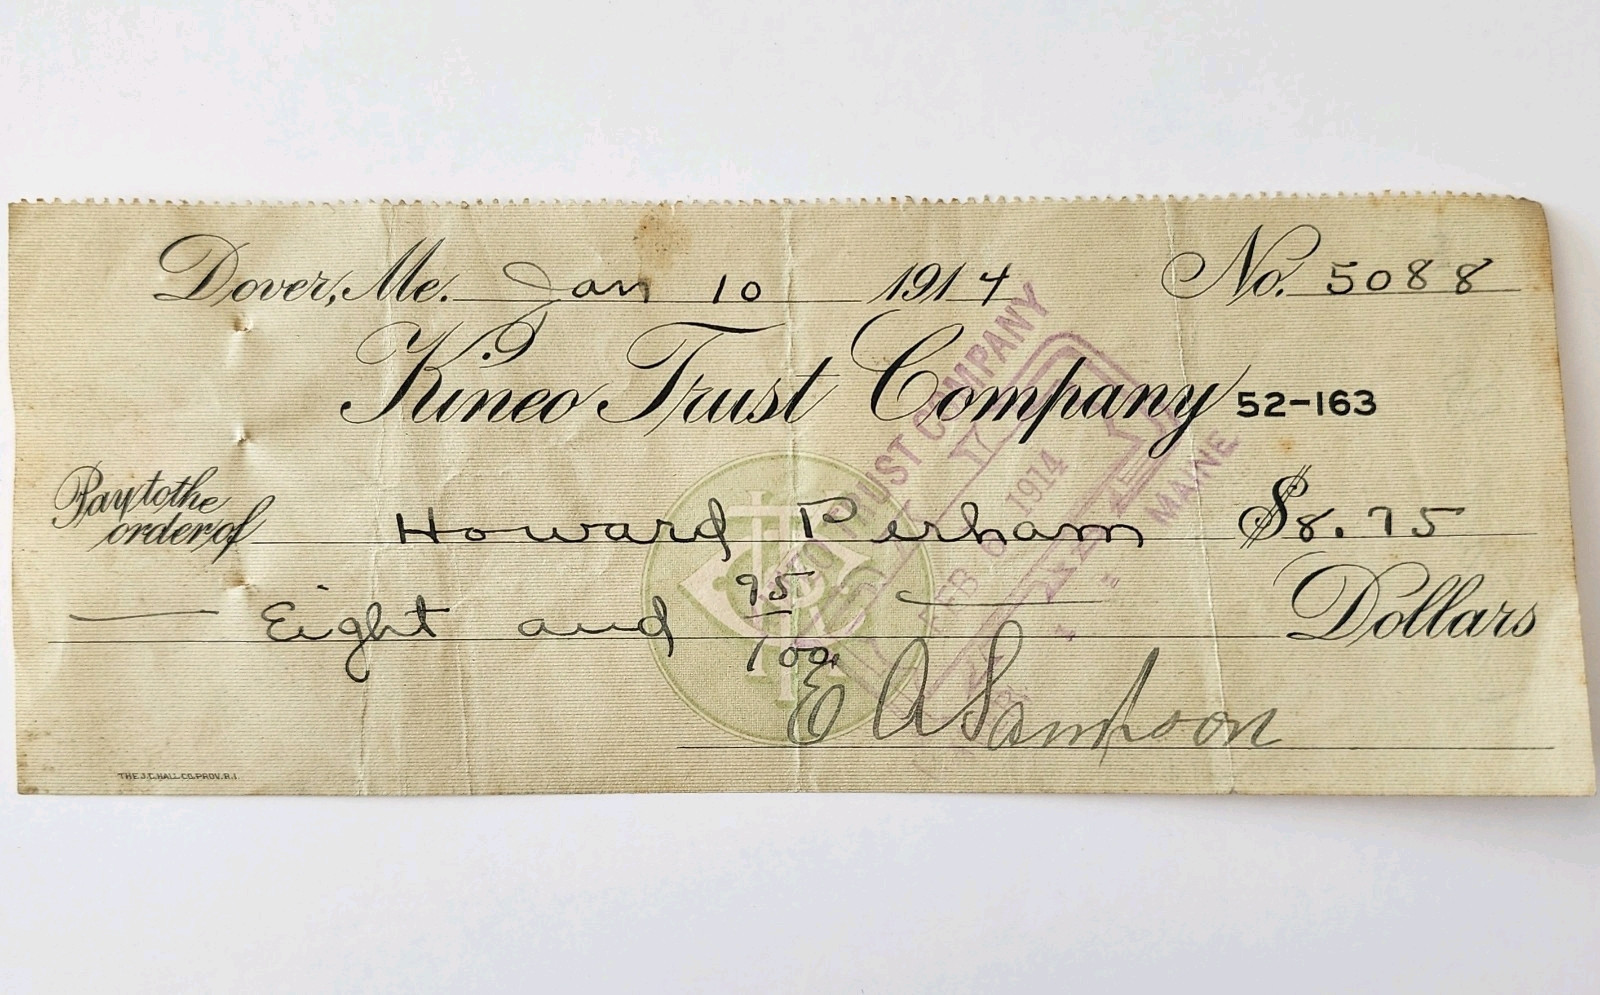 Dover, Me. Jan 10 1914 No. 5088
Kineo Trust Company 52-163
Pay to the
order of Howard Perham $8.75
Eight and 75/100 Dollars
E A Sampson
THE J.C. HALL CO. PROV. R.I.
TRUST COMPANY
FEB 6 1914
MAINE